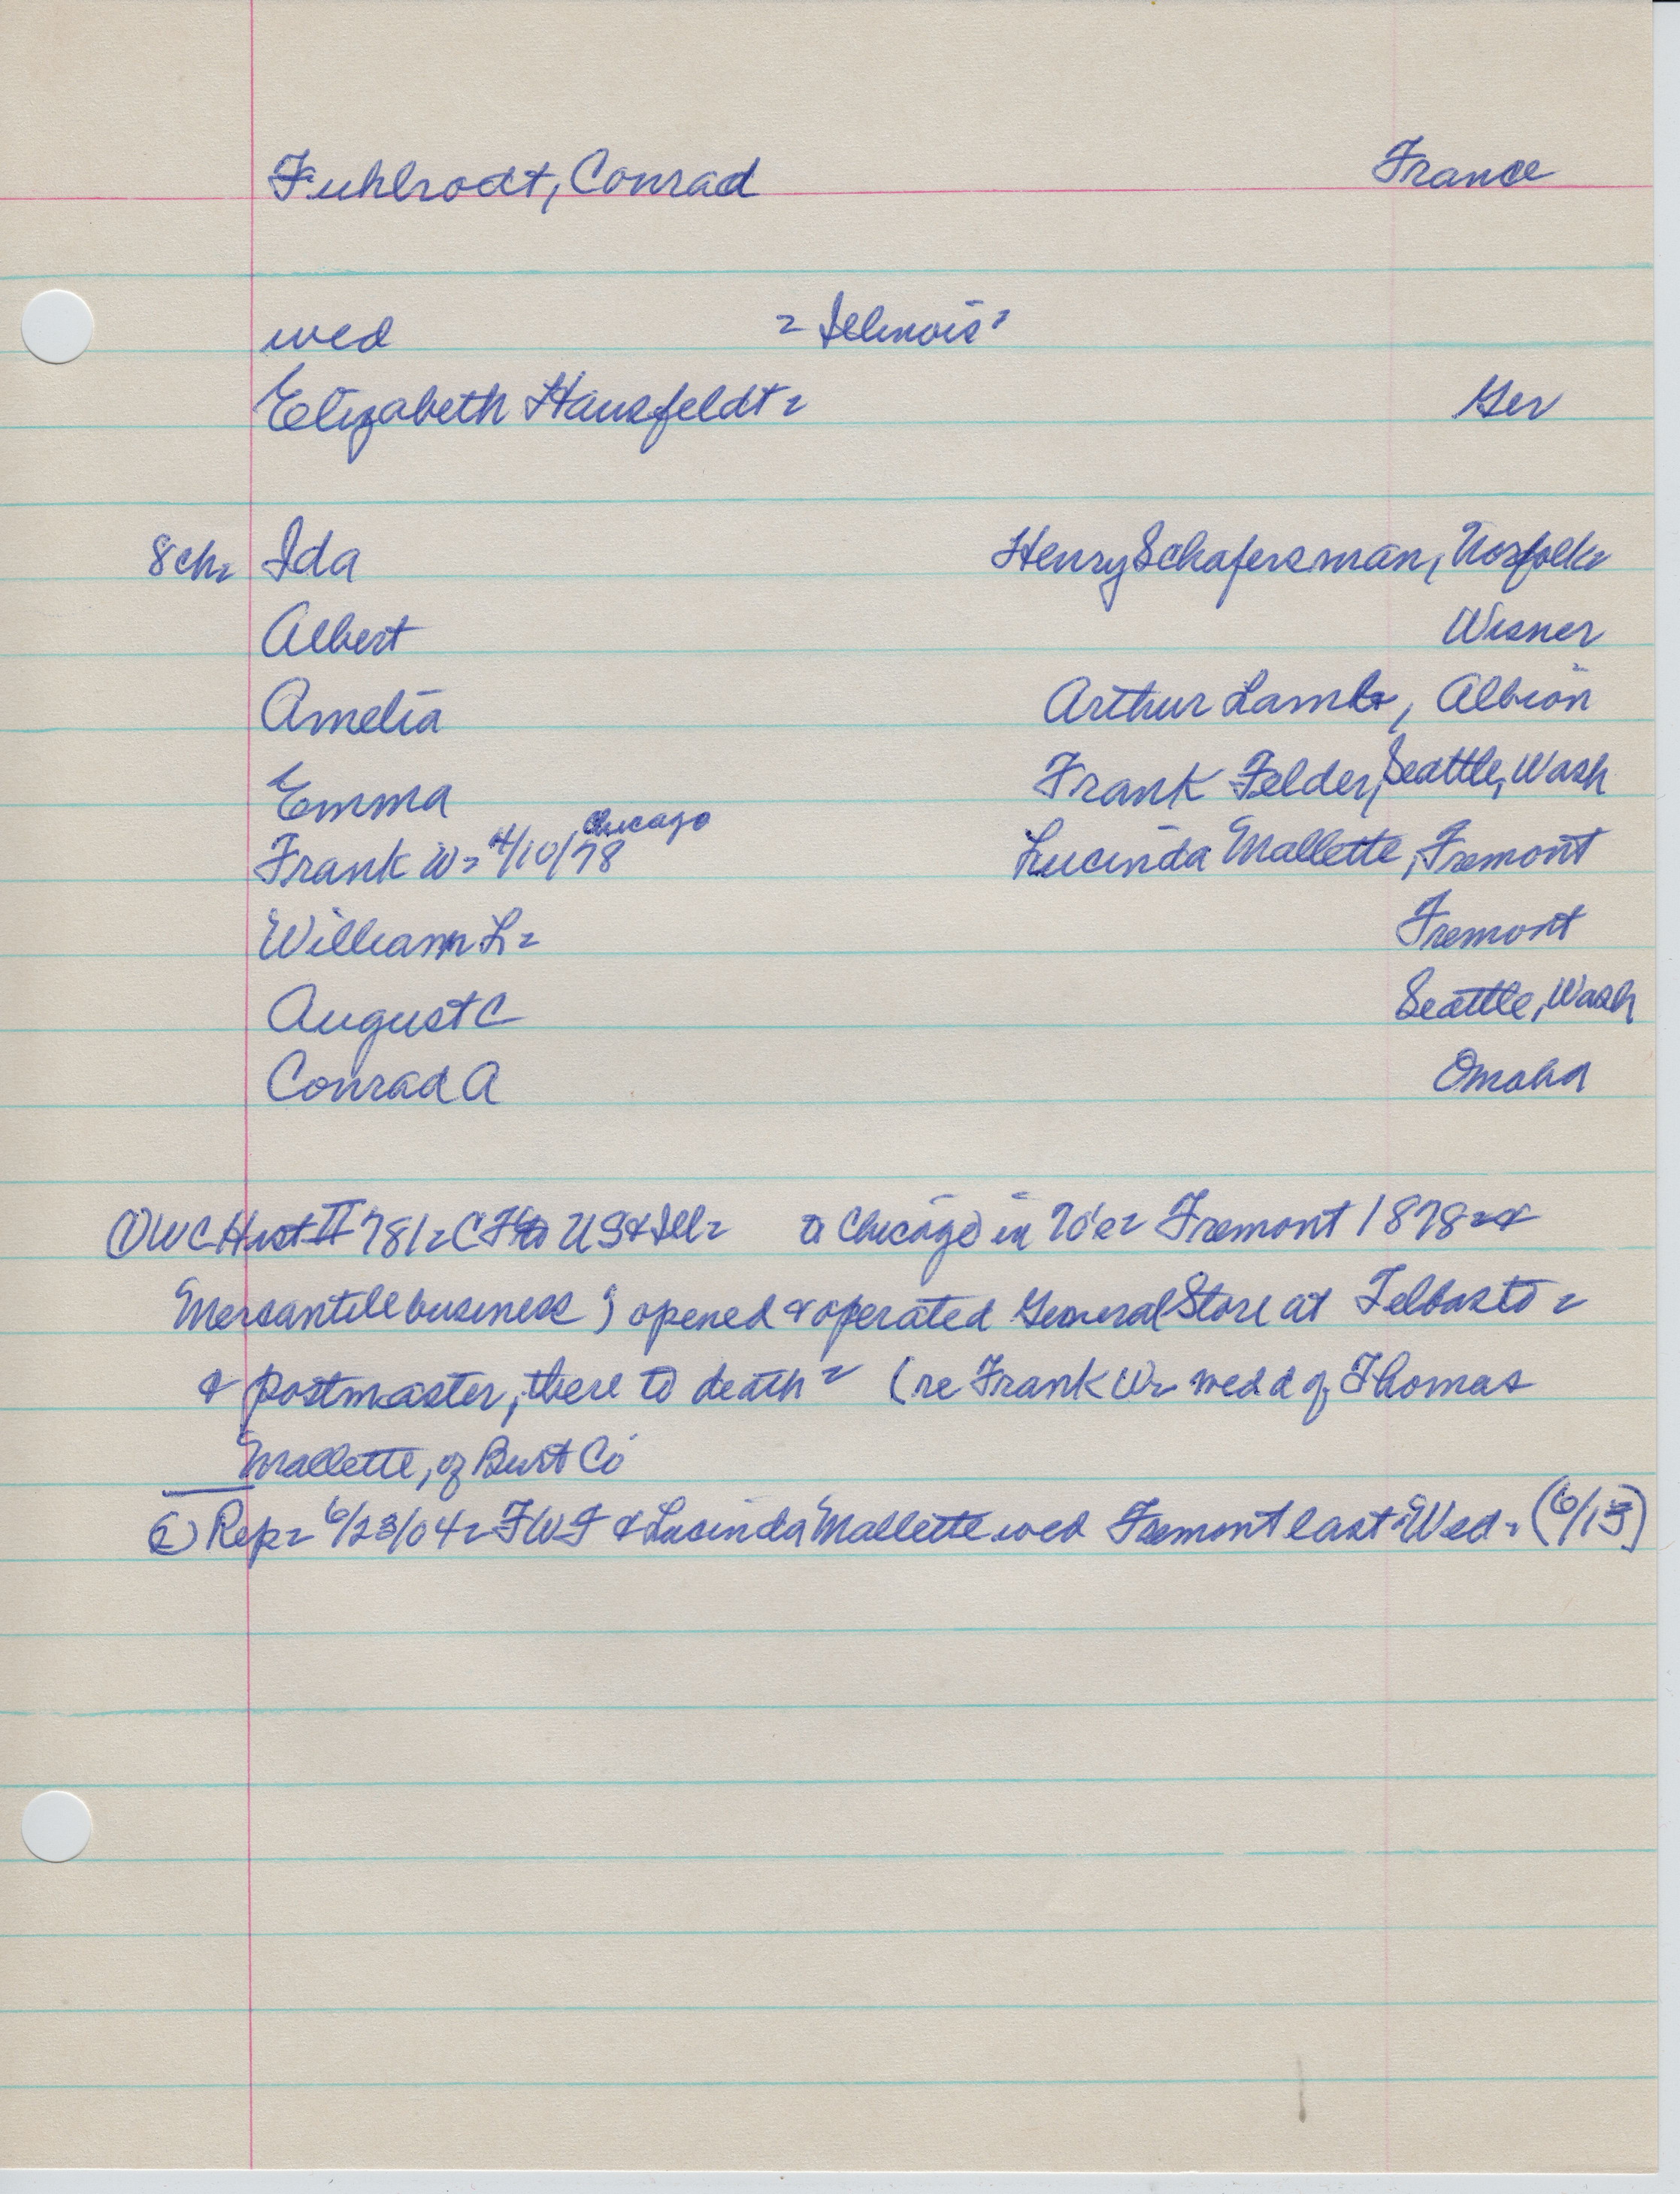 Fuhlrodt, Conrad France
wed Illinois
Elizabeth Hausfeldt Ger
8 ch. Ida Henry Schafersman, Norfolk
Albert Wisner
Amelia Arthur Lamb, Albion
Emma Frank Felder, Seattle, Wash
Chicago
Frank W. 4/10/78 Lucinda Mallette, Fremont
William L. Fremont
August C Seattle, Wash
Conrad A Omaha
① WC Hist II 781. CF to US & Ill. to Chicago in 70's. Fremont 1878. &
Mercantile business) opened & operated General Store at Telbasta.
& postmaster, there to death. (re Frank W. wed d of Thomas
Mallette, of Burt Co
② Rep. 6/23/04. FWF & Lucinda Mallette wed Fremont last Wed. (6/15)